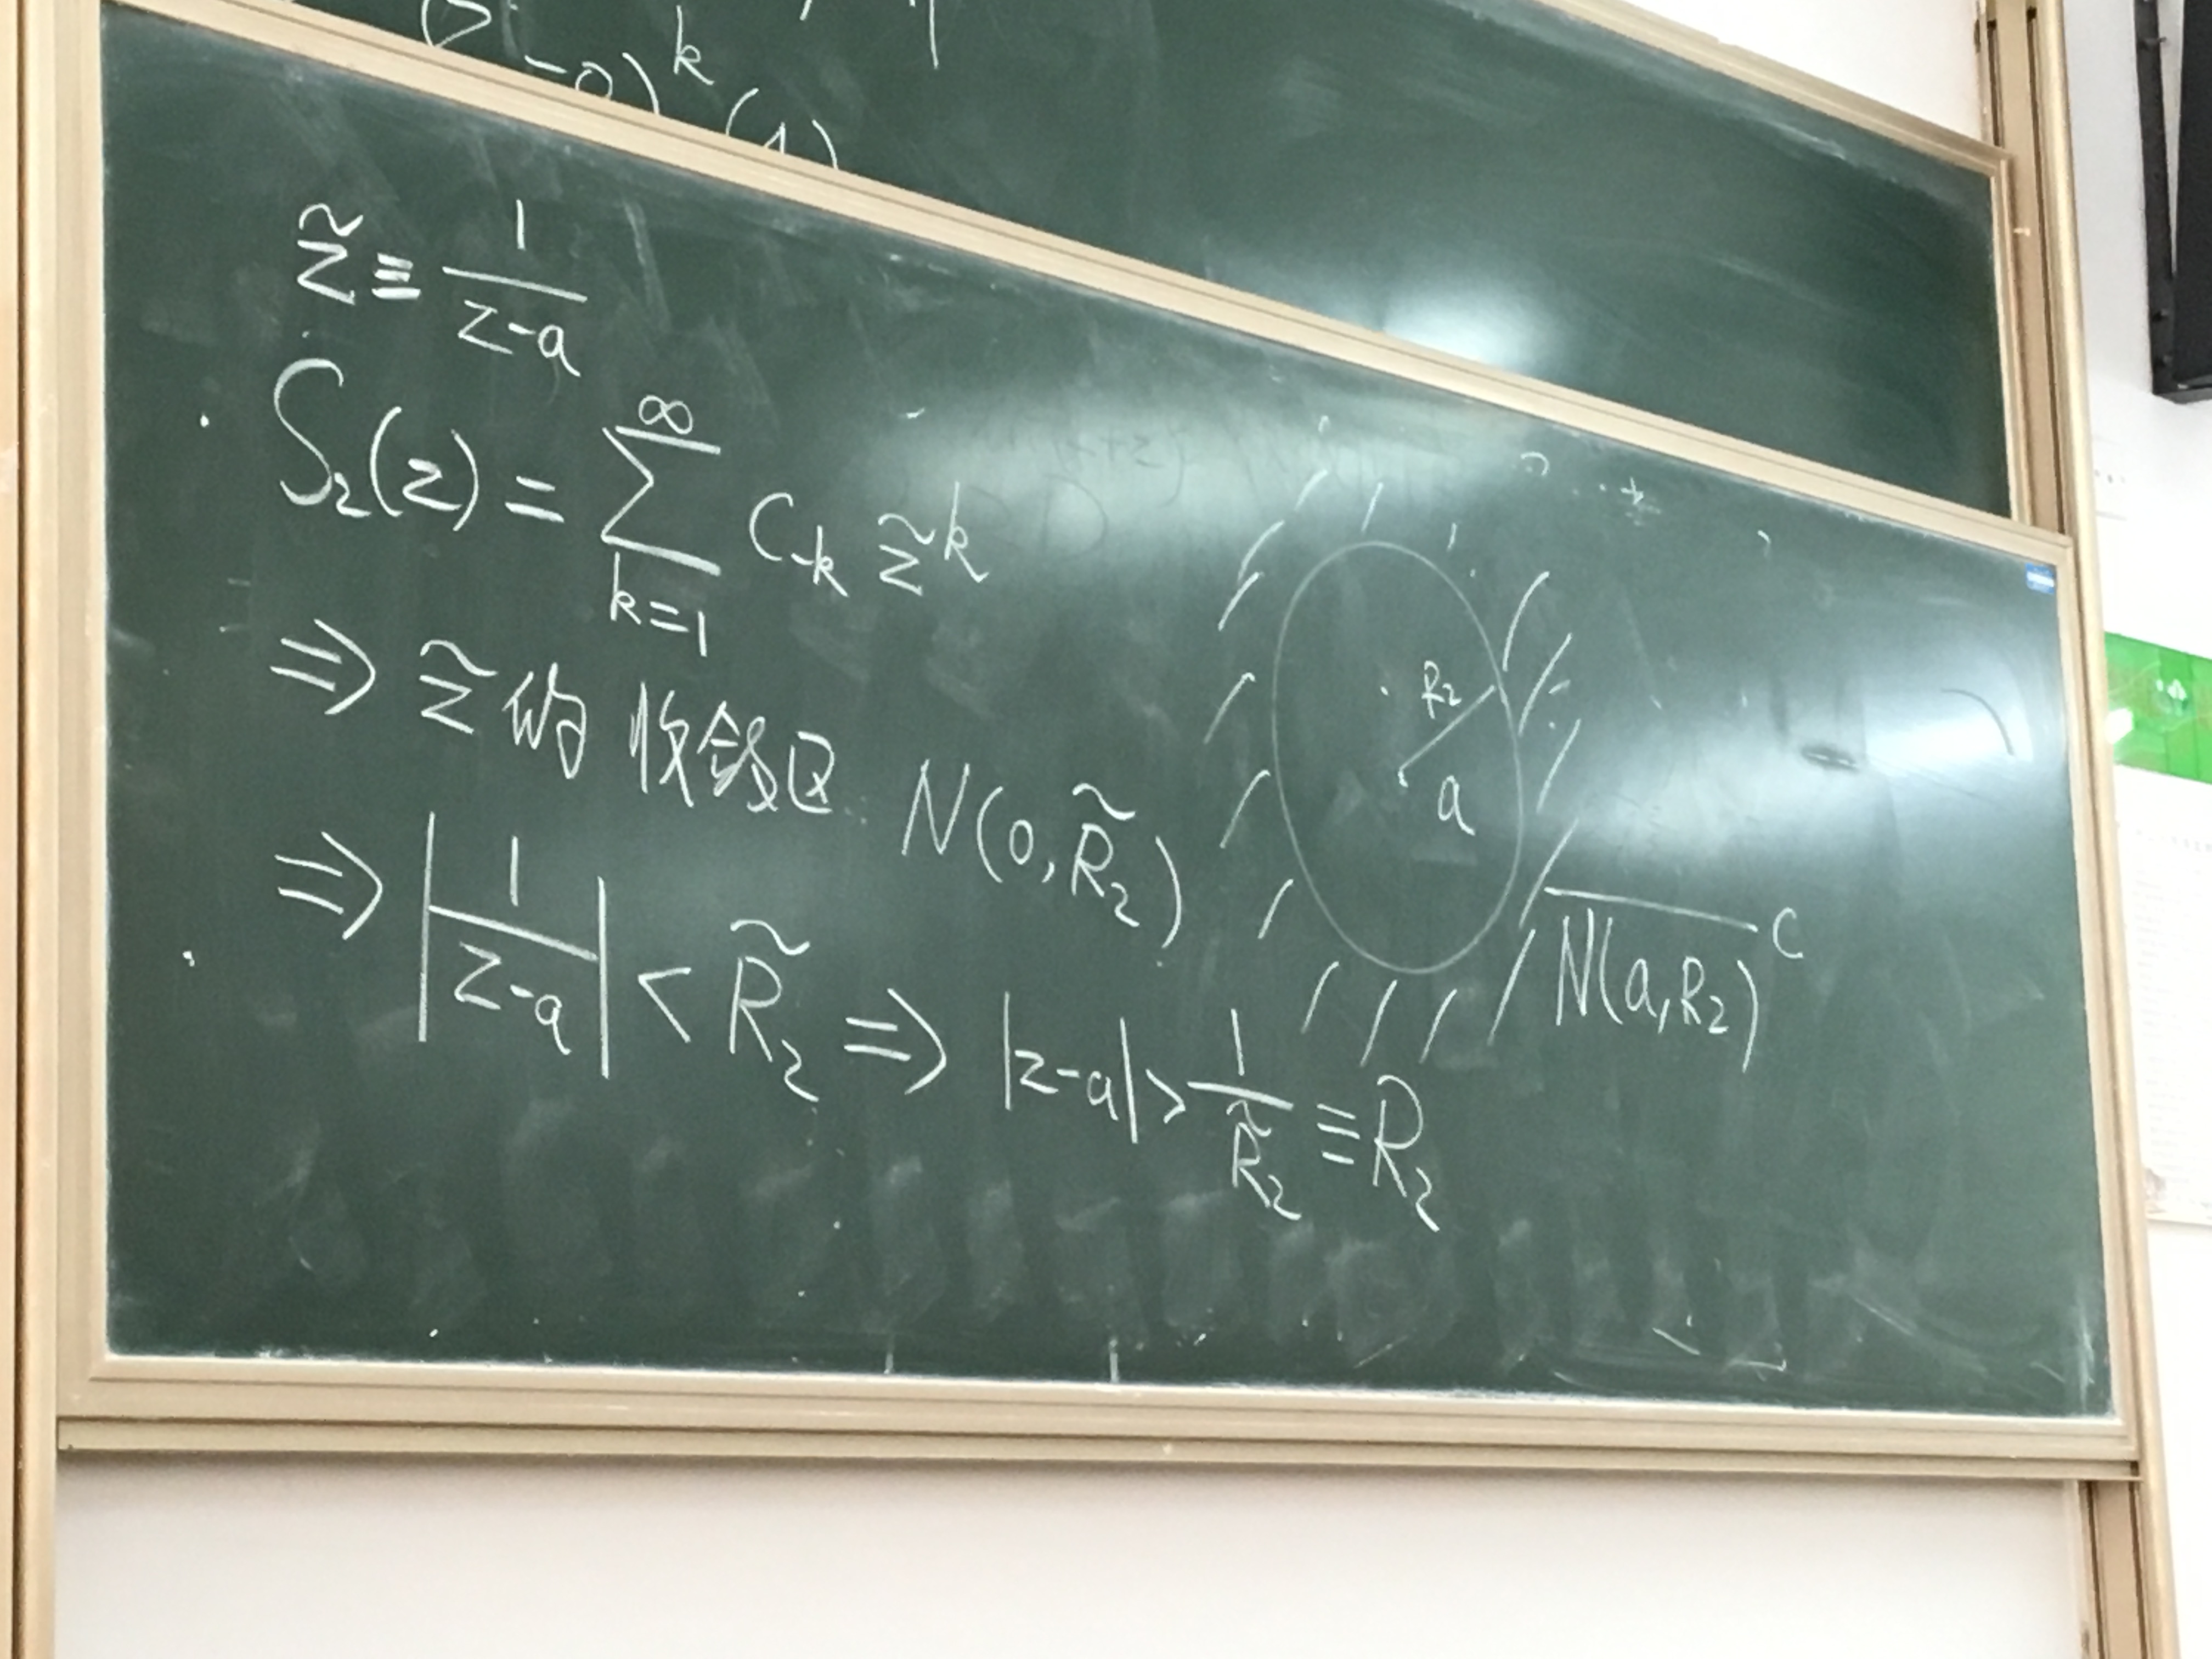 -a)^k (1)
z̃ ≡ 1/(z-a)
S₂(z) = ∑_{k=1}^{∞} C_{-k} z̃^k
⇒ z̃ 的 收敛区 N(0, R̃₂)
⇒ |1/(z-a)| < R̃₂ ⇒ |z-a| > 1/R̃₂ ≡ R₂
R₂
a
\overline{N(a,R₂)}^c